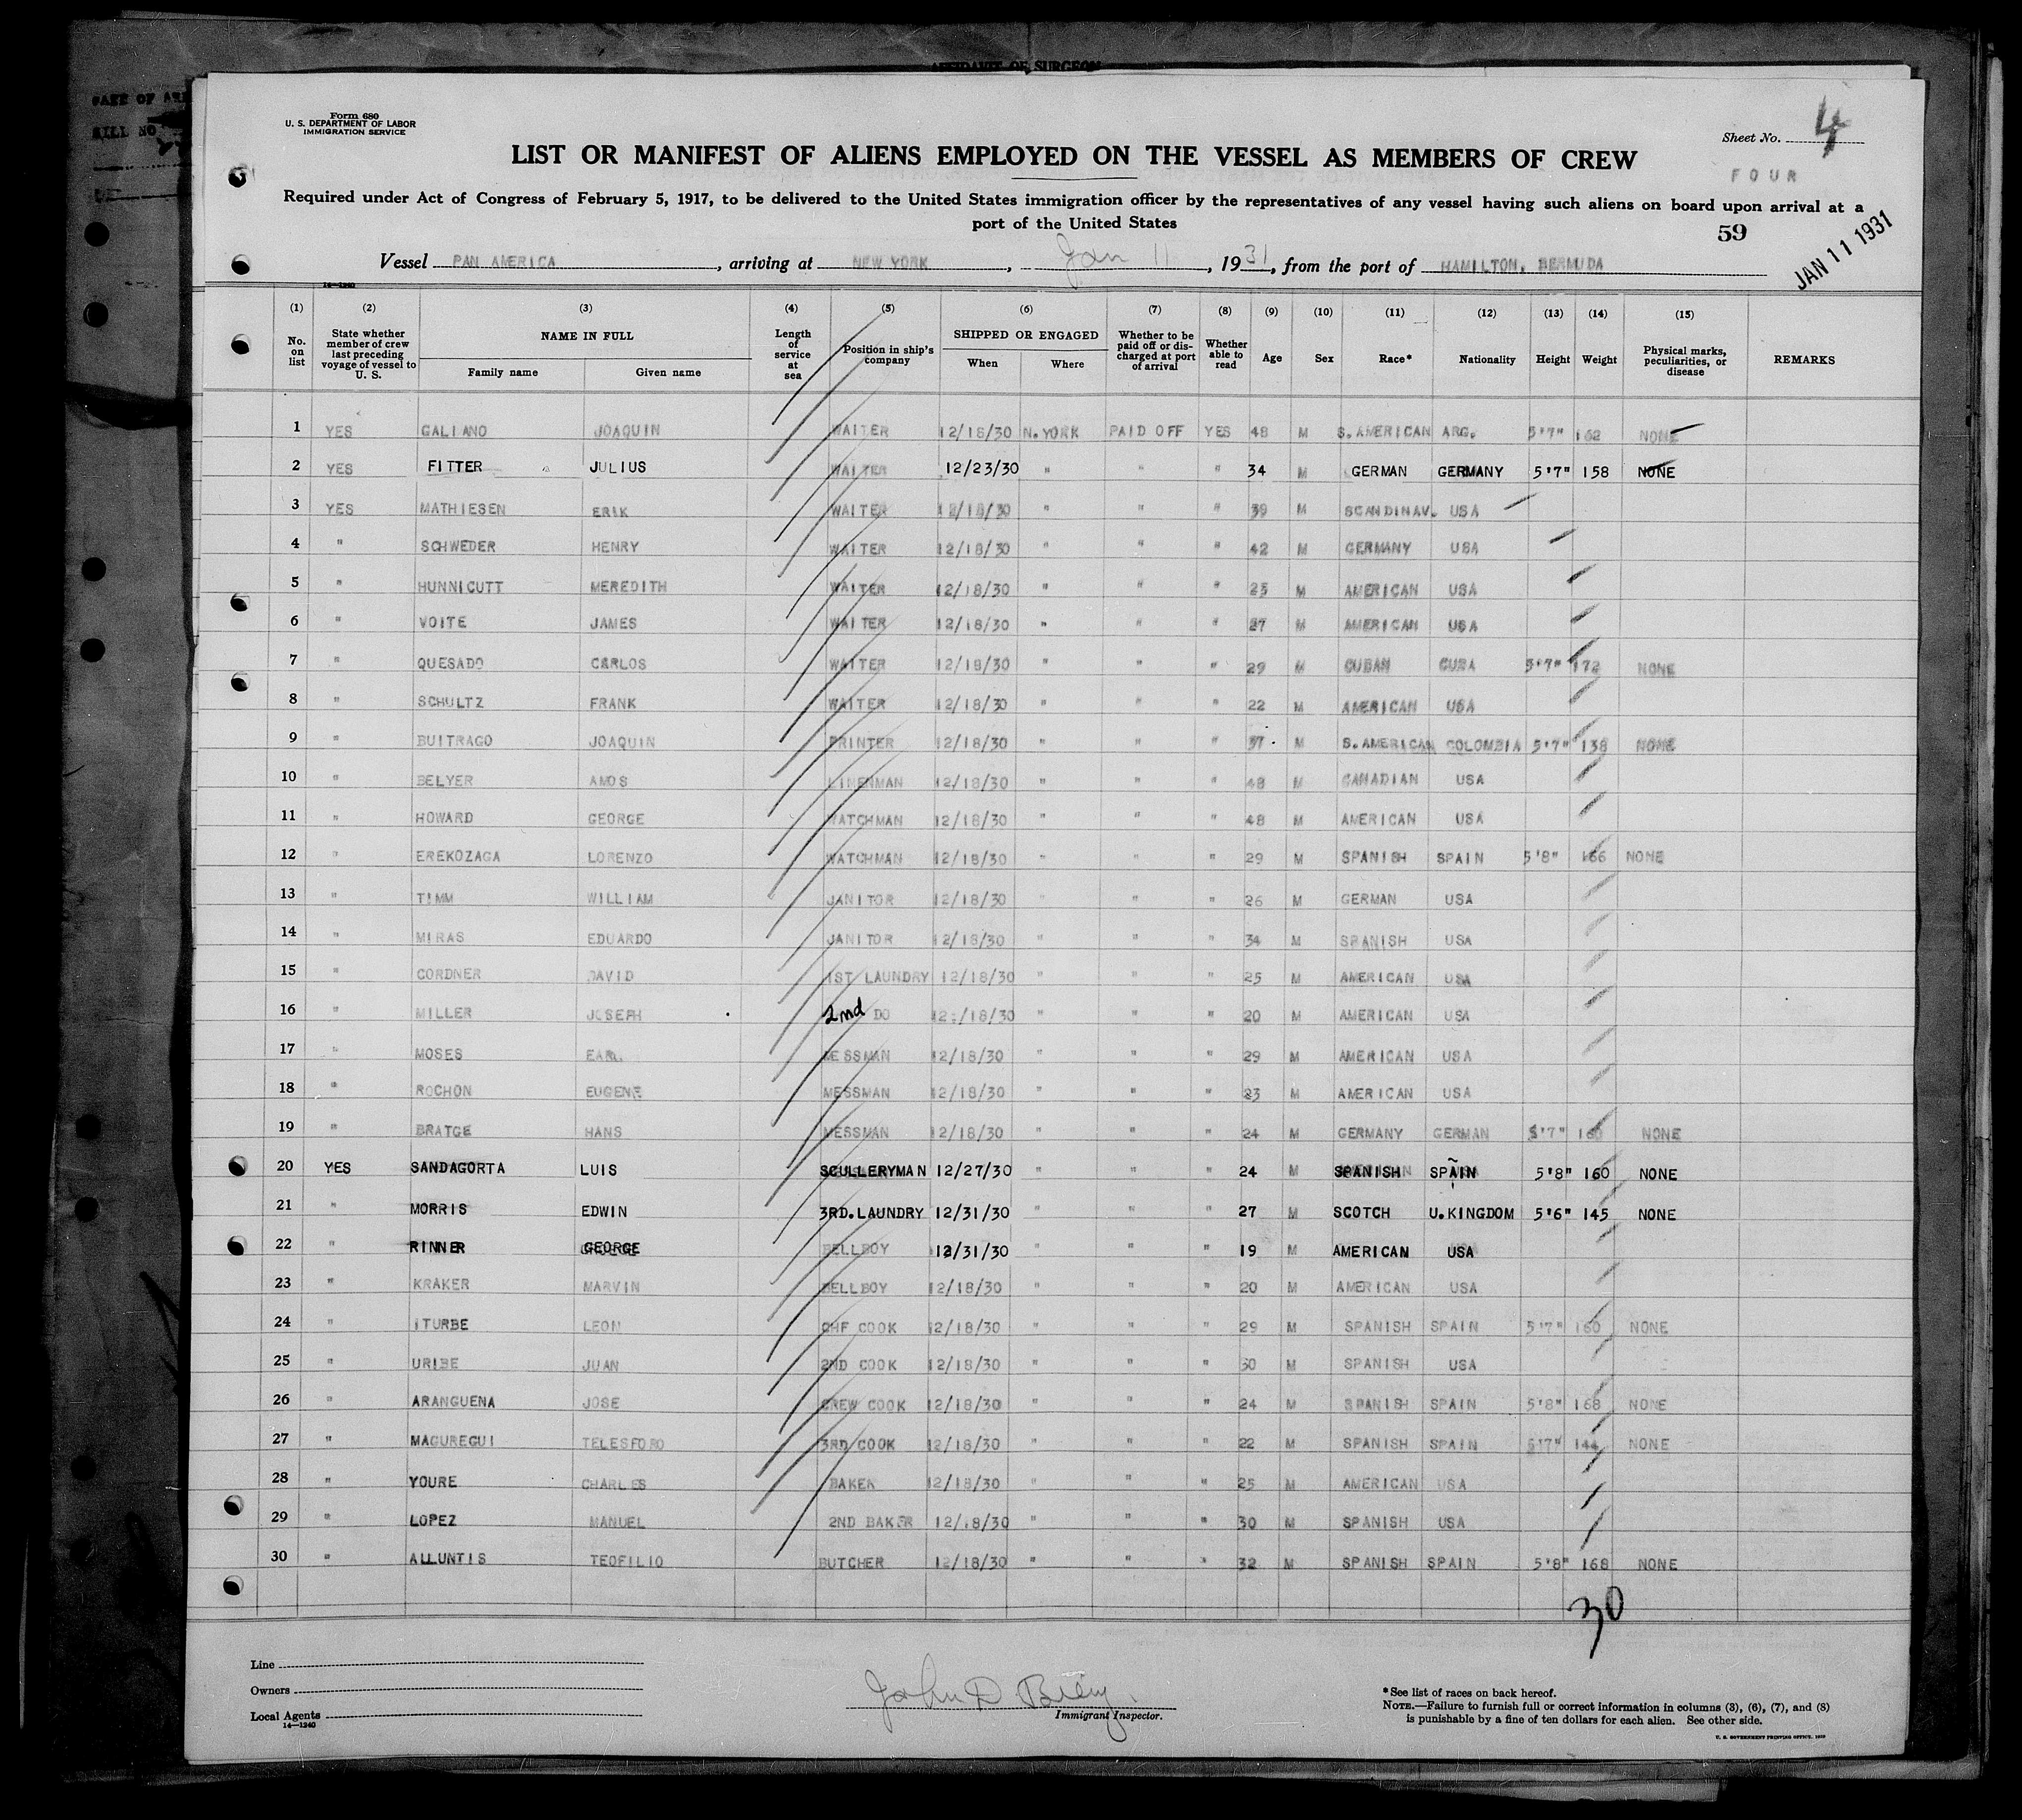 AFFIDAVIT OF SURGEON
Form 680
U. S. DEPARTMENT OF LABOR
IMMIGRATION SERVICE
Sheet No. 4
FOUR
LIST OR MANIFEST OF ALIENS EMPLOYED ON THE VESSEL AS MEMBERS OF CREW
Required under Act of Congress of February 5, 1917, to be delivered to the United States immigration officer by the representatives of any vessel having such aliens on board upon arrival at a
port of the United States
59
JAN 11 1931
Vessel PAN AMERICA, arriving at NEW YORK, Jan 11, 1931, from the port of HAMILTON, BERMUDA
14—1240
(1) (2) (3) (4) (5) (6) (7) (8) (9) (10) (11) (12) (13) (14) (15)
No. on list State whether member of crew last preceding voyage of vessel to U. S. NAME IN FULL Family name Given name Length of service at sea Position in ship's company SHIPPED OR ENGAGED When Where Whether to be paid off or discharged at port of arrival Whether able to read Age Sex Race* Nationality Height Weight Physical marks, peculiarities, or disease REMARKS
1 YES GALIANO JOAQUIN WAITER 12/18/30 N.YORK PAID OFF YES 48 M S.AMERICAN ARG. 5'7" 162 NONE
2 YES FITTER JULIUS WAITER 12/23/30 " " " 34 M GERMAN GERMANY 5'7" 158 NONE
3 YES MATHIESEN ERIK WAITER 12/18/30 " " " 39 M SCANDINAV. USA
4 " SCHWEDER HENRY WAITER 12/18/30 " " " 42 M GERMANY USA
5 " HUNNICUTT MEREDITH WAITER 12/18/30 " " " 25 M AMERICAN USA
6 " VOITE JAMES WAITER 12/18/30 " " " 27 M AMERICAN USA
7 " QUESADO CARLOS WAITER 12/18/30 " " " 29 M CUBAN CUBA 5'7" 172 NONE
8 " SCHULTZ FRANK WAITER 12/18/30 " " " 22 M AMERICAN USA
9 " BUITRAGO JOAQUIN PRINTER 12/18/30 " " " 37 M S.AMERICAN COLOMBIA 5'7" 138 NONE
10 " BELYER AMOS LINENMAN 12/18/30 " " " 48 M CANADIAN USA
11 " HOWARD GEORGE WATCHMAN 12/18/30 " " " 48 M AMERICAN USA
12 " EREKOZAGA LORENZO WATCHMAN 12/18/30 " " " 29 M SPANISH SPAIN 5'8" 166 NONE
13 " TIMM WILLIAM JANITOR 12/18/30 " " " 26 M GERMAN USA
14 " MIRAS EDUARDO JANITOR 12/18/30 " " " 34 M SPANISH USA
15 " CORDNER DAVID 1ST LAUNDRY 12/18/30 " " " 25 M AMERICAN USA
16 " MILLER JOSEPH 2nd DO 12/18/30 " " " 20 M AMERICAN USA
17 " MOSES EARL MESSMAN 12/18/30 " " " 29 M AMERICAN USA
18 " ROCHON EUGENE MESSMAN 12/18/30 " " " 23 M AMERICAN USA
19 " BRATGE HANS MESSMAN 12/18/30 " " " 24 M GERMANY GERMAN 5'7" 160 NONE
20 YES SANDAGORTA LUIS SCULLERYMAN 12/27/30 " " " 24 M SPANISH SPAIN 5'8" 160 NONE
21 " MORRIS EDWIN 3RD.LAUNDRY 12/31/30 " " " 27 M SCOTCH U.KINGDOM 5'6" 145 NONE
22 " RINNER GEORGE BELLBOY 12/31/30 " " " 19 M AMERICAN USA
23 " KRAKER MARVIN BELLBOY 12/18/30 " " " 20 M AMERICAN USA
24 " ITURBE LEON CHF COOK 12/18/30 " " " 29 M SPANISH SPAIN 5'7" 160 NONE
25 " URIBE JUAN 2ND COOK 12/18/30 " " " 30 M SPANISH USA
26 " ARANGUENA JOSE CREW COOK 12/18/30 " " " 24 M SPANISH SPAIN 5'8" 168 NONE
27 " MAGUREGUI TELESFORO 3RD COOK 12/18/30 " " " 22 M SPANISH SPAIN 5'7" 144 NONE
28 " YOURE CHARLES BAKER 12/18/30 " " " 25 M AMERICAN USA
29 " LOPEZ MANUEL 2ND BAKER 12/18/30 " " " 30 M SPANISH USA
30 " ALLUNTIS TEOFILIO BUTCHER 12/18/30 " " " 32 M SPANISH SPAIN 5'8" 168 NONE
30
Line
Owners
Local Agents
14—1240
John D
Immigrant Inspector.
*See list of races on back hereof.
NOTE.—Failure to furnish full or correct information in columns (3), (6), (7), and (8)
is punishable by a fine of ten dollars for each alien. See other side.
U. S. GOVERNMENT PRINTING OFFICE: 1929